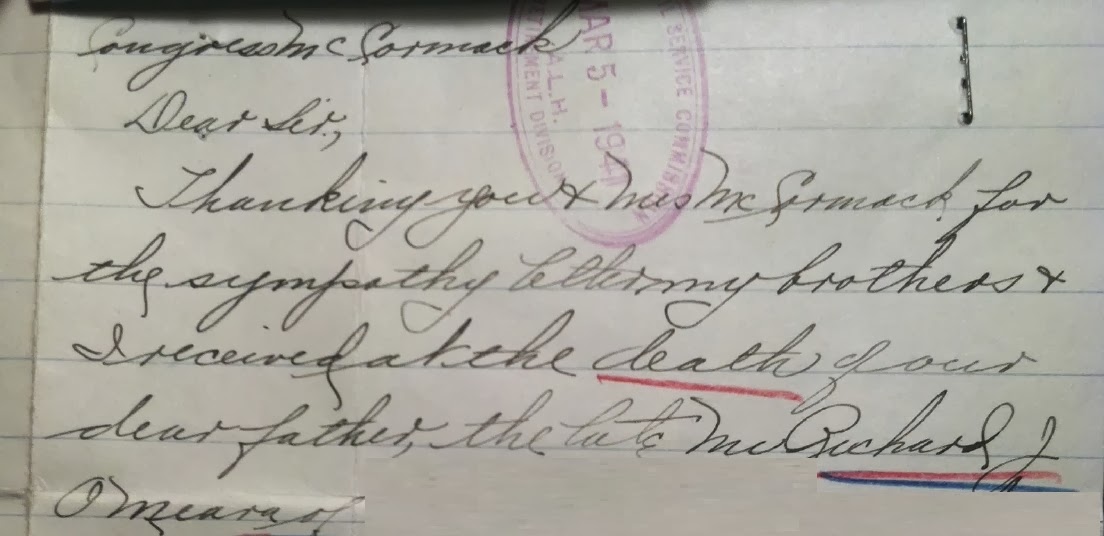 Congress McCormack
Dear Sir,
Thanking you & Mrs McCormack for
the sympathy letter my brothers &
I received at the death of our
dear father, the late Mr Richard J
O'Meara of
SERVICE COMMISSION
MAR 5 - 1941
A.L.H.
RETIREMENT DIVISION